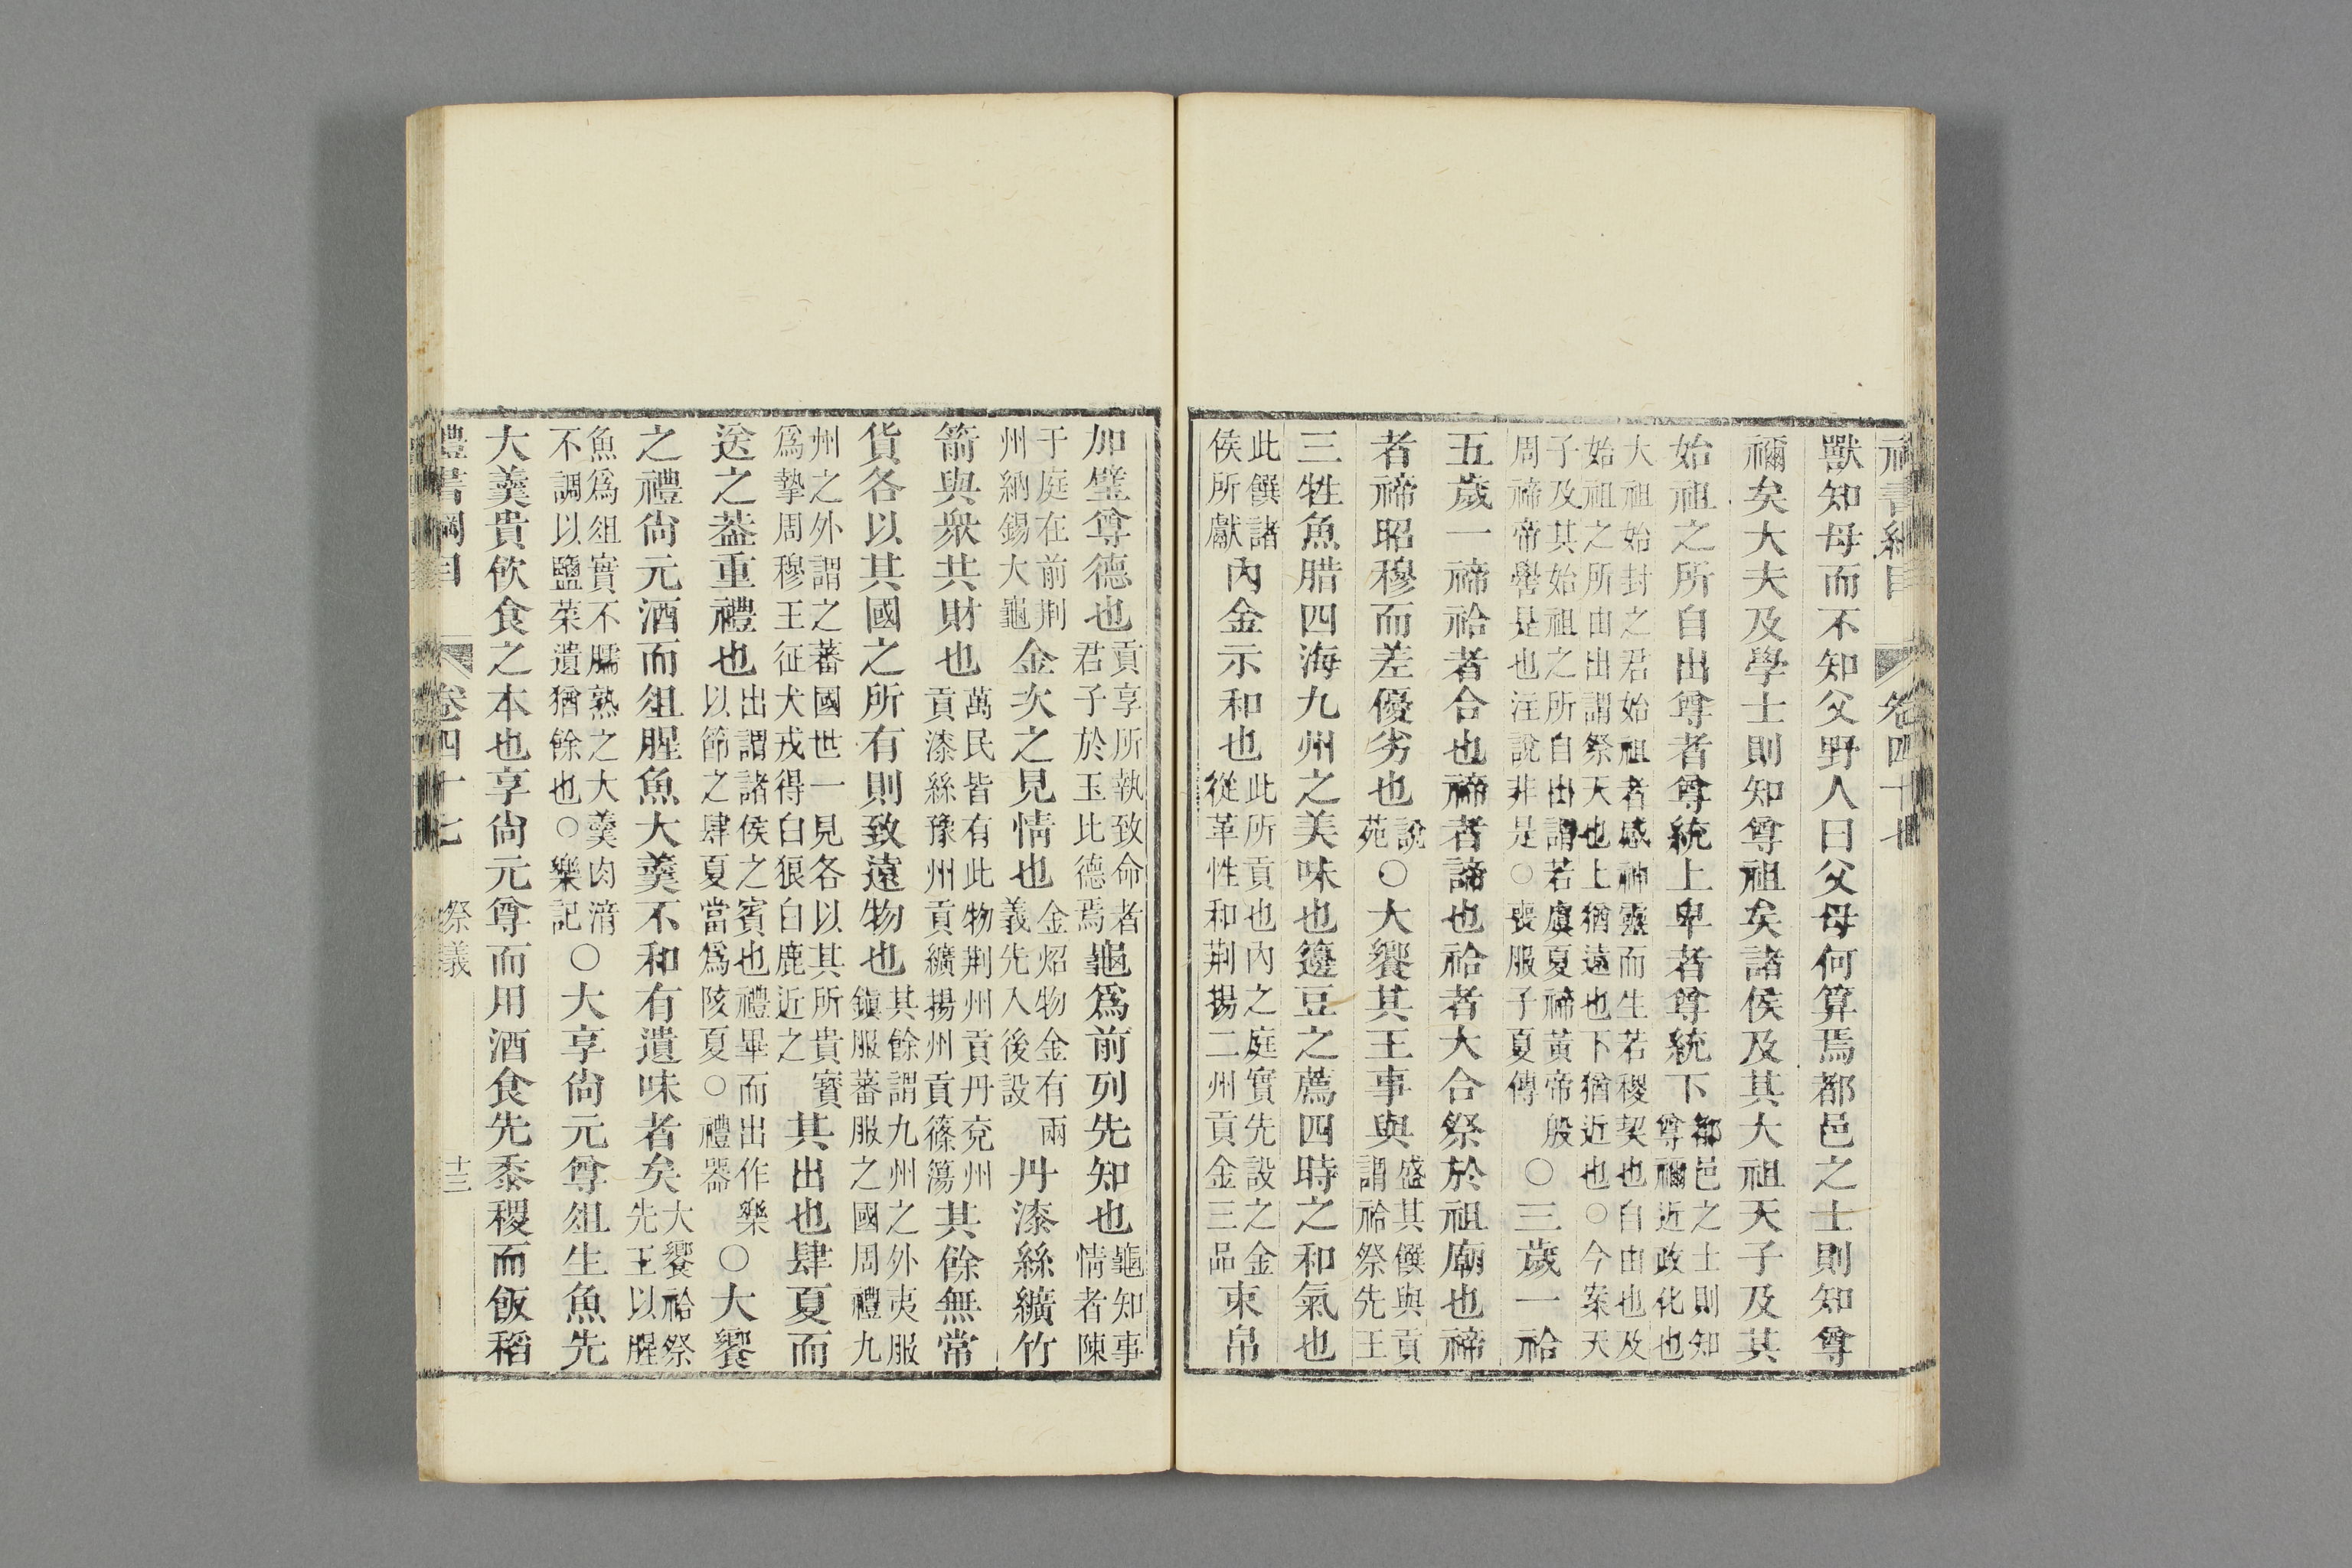 禮書綱目 卷四十七
獸知母而不知父野人曰父母何算焉都邑之士則知尊
禰矣大夫及學士則知尊祖矣諸侯及其大祖天子及其
始祖之所自出尊者尊統上卑者尊統下都邑之士則知尊禰近政化也
大祖始封之君始祖者感神靈而生若稷契也自由也及始祖之所由出謂祭天也上猶遠也下猶近也○今案天
子及其始祖之所自出謂若虞夏禘黃帝殷周禘帝嚳是也注說非是○喪服子夏傳○三歲一祫
五歲一禘祫者合也禘者諦也祫者大合祭於祖廟也禘
者禘昭穆而差優劣也說苑○大饗其王事與盛其饌與貢謂祫祭先王
三牲魚腊四海九州之美味也籩豆之薦四時之和氣也
此饌諸侯所獻內金示和也此所貢也內之庭實先設之金從革性和荆揚二州貢金三品束帛
加璧尊德也貢享所執致命者君子於玉比德焉龜爲前列先知也龜知事情者陳
于庭在前荆州納錫大龜金次之見情也金炤物金有兩義先入後設丹漆絲纊竹
箭與眾共財也萬民皆有此物荆州貢丹兗州貢漆絲豫州貢纊揚州貢篠簜其餘無常
貨各以其國之所有則致遠物也其餘謂九州之外夷服鎭服蕃服之國周禮九
州之外謂之蕃國世一見各以其所貴寶爲摯周穆王征犬戎得白狼白鹿近之其出也肆夏而
送之葢重禮也出謂諸侯之賓也禮畢而出作樂以節之肆夏當爲陔夏○禮器○大饗
之禮尙元酒而俎腥魚大羹不和有遺味者矣大饗祫祭先王以腥
魚爲俎實不臑熟之大羹肉湇不調以鹽菜遺猶餘也○樂記○大享尙元尊俎生魚先
大羹貴飮食之本也享尙元尊而用酒食先黍稷而飯稻
禮書綱目 卷四十七 祭義 十三